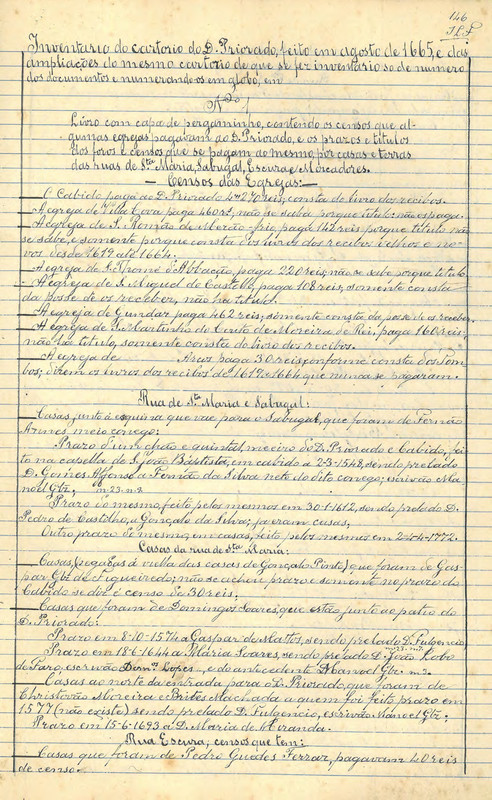 146
J. L. F.
Inventario do cartorio do D. Priorado, feito em agosto de 1665, e das
ampliações do mesmo cartorio de que se fez inventario so de numero
dos documentos e numerando-os em globo, em
Nº 1
Livro com capa de pergaminho, contendo os censos que al-
gumas egrejas pagavam ao D. Priorado, e os prazos e titulos
dos foros e censos que se pagam ao mesmo, por casas e terras
das ruas de Sta Maria, Sabugal, Escura e Mercadores.
— Censos das Egrejas: —
O Cabido paga ao D. Priorado 4:270 reis; consta do livro dos recibos.
— A egreja de Villa Cova paga 460 rs, não se sabe porque titulo não se paga.
— A egreja de S. Romão de Mezão-frio, paga 142 reis porque titulo não
se sabe, e somente porque consta dos livros dos recibos velhos e no-
vos desde 1619 até 1664.
— A egreja de S. Thomé d'Abbação, paga 220 reis; não se sabe porque titulo.
— A egreja de S. Miguel do Castello, paga 108 reis; somente consta
da posse de os receber, não ha titulo.
— A egreja de Gundar paga 462 reis; somente consta da posse de os receber.
— A egreja de S. Martinho do Conto de Moreira de Rei, paga 160 reis;
não ha titulo, somente consta do livro dos recibos.
— A egreja de Arcos paga 30 reis, conforme consta dos Tom-
bos; dizem os livros dos recibos de 1619 e 1664 que nunca se pagaram.
Rua de Sta Maria e Sabugal:
— Casas, junto á esquina que vae para o Sabugal, que foram de Fernão
Annes, meio conego:
Prazo d'um chão e quintal, meeiro do D. Priorado e Cabido, fei-
to na capella de S. João Baptista, em cabido a 2-3-1548, sendo prelado
D. Gomes Affonso a Fernão da Silva neto do dito conego; escrivão Ma-
noel Gtz,
Prazo do mesmo, feito pelos mesmos em 30-1-1612, sendo prelado D.
Pedro de Castilho, a Gonçalo da Silva; já eram casas,
Outro prazo do mesmo, em casas, feito pelos mesmos em 24-4-1772.
Casas da rua de Sta Maria:
— Casas, (pegadas á viella das casas de Gonçalo Pinto) que foram de Gas-
par Glz de Figueiredo; não se achou prazo e somente no prazo do
Cabido se diz é censo de 30 reis;
— Casas que foram de Domingos Soares, que estão junto ao patio do
D. Priorado:
Prazo em 8-10-1574 a Gaspar de Mattos, sendo prelado D. Fulgencio,
Prazo em 18-6-1644 a Maria Soares, sendo prelado D. João Lobo
de Faro, escrivão Domos Lopes, e do antecedente Manoel Gtz.
— Casas ao norte da entrada para o D. Priorado, que foram de
Christovão Moreira e Brites Machada a quem foi feito prazo em
1577 (não existe) sendo prelado D. Fulgencio, escrivão Manoel Gtz,
Prazo em 15-6-1693 a D. Maria de Miranda.
Rua Escura, censos que tem:
— Casas que foram de Pedro Guedes Ferraz, pagavam 40 reis
de censo.